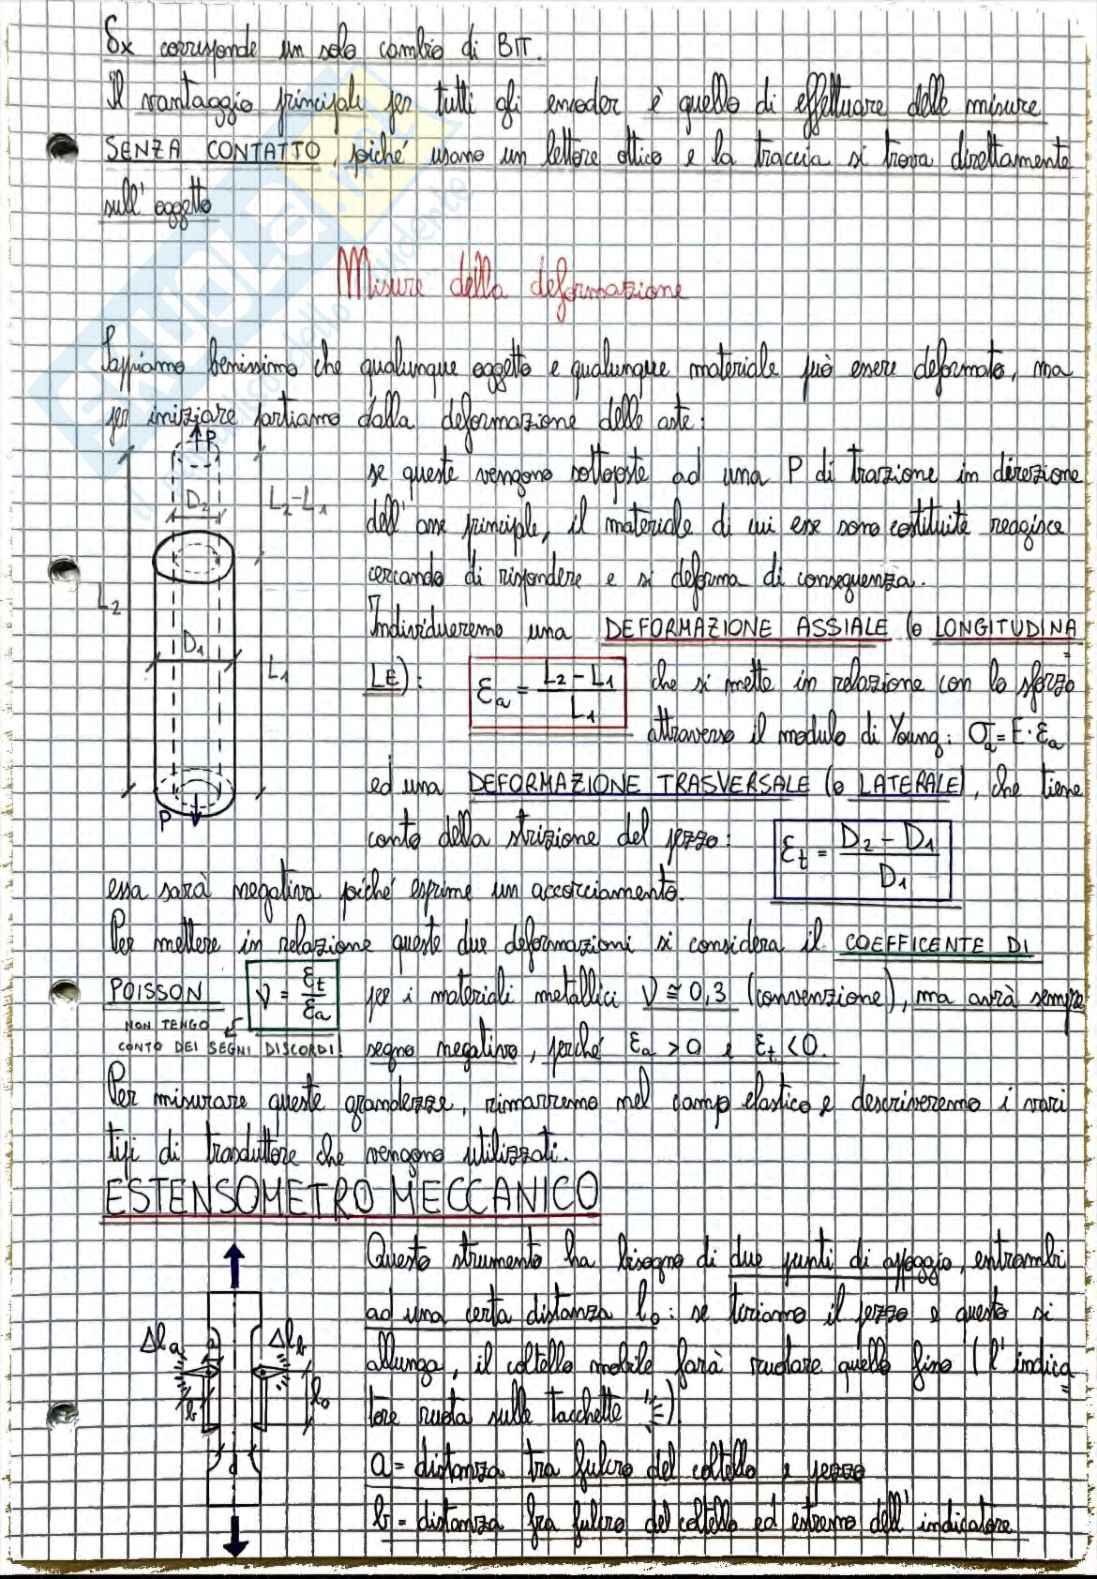 δx corrisponde un solo cambio di BIT.
Il vantaggio principale per tutti gli encoder è quello di effettuare delle misure
SENZA CONTATTO, poiché usano un lettore ottico e la traccia si trova direttamente
sull'oggetto
Misure della deformazione
Sappiamo benissimo che qualunque oggetto e qualunque materiale può essere deformato, ma
per iniziare partiamo dalla deformazione delle aste:
P
se queste vengono sottoposte ad una P di trazione in direzione
D₂
L₂-L₁
dell'asse principale, il materiale di cui esse sono costituite reagisce
cercando di rispondere e si deforma di conseguenza.
L₂
Individueremo una DEFORMAZIONE ASSIALE (o LONGITUDINA
D₁
L₁
LE): εa = L₂-L₁ / L₁ che si mette in relazione con lo sforzo
attraverso il modulo di Young: σa=E·εa
ed una DEFORMAZIONE TRASVERSALE (o LATERALE), che tiene
P
conto della strizione del pezzo: εt = D₂-D₁ / D₁
essa sarà negativa poiché esprime un accorciamento.
Per mettere in relazione queste due deformazioni si considera il COEFFICENTE DI
POISSON ν = εt / εa per i materiali metallici ν ≅ 0,3 (convenzione), ma avrà sempre
NON TENGO
CONTO DEI SEGNI DISCORDI! segno negativo, perché εa >0 e εt <0.
Per misurare queste grandezze, rimarremo nel campo elastico e descriveremo i vari
tipi di trasduttore che vengono utilizzati.
ESTENSOMETRO MECCANICO
Questo strumento ha bisogno di due punti di appoggio, entrambi
ad una certa distanza l₀: se tiriamo il pezzo e questo si
Δla a Δlb
allunga, il coltello mobile farà ruotare quello fino (l'indica
b l₀
tore ruota sulle tacchette)
a= distanza tra fulcro del coltello e pezzo
d
b= distanza fra fulcro del coltello ed estremo dell'indicatore